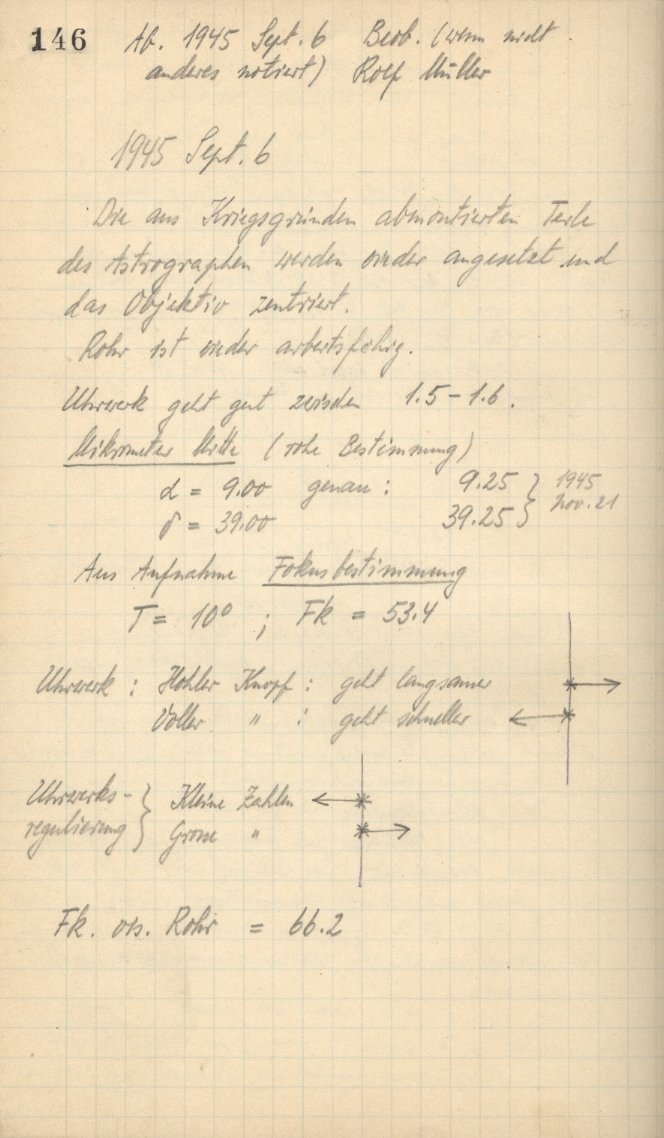 146 Ab. 1945 Sept. 6 Beob. (wenn nicht
anderes notiert) Rolf Müller
1945 Sept. 6
Die aus Kriegsgründen abmontierten Teile
des Astrographen werden wieder angesetzt und
das Objektiv zentriert.
Rohr ist wieder arbeitsfähig.
Uhrwerk geht gut zwischen 1.5 – 1.6.
Mikrometer Mitte (rohe Bestimmung)
α = 9.00 genau: 9.25 } 1945
δ = 39.00 39.25 } Nov. 21
Aus Aufnahme Fokusbestimmung
T = 10° ; Fk = 53.4
Uhrwerk : Hohler Knopf : geht langsamer
Voller " : geht schneller
Uhrwerks- } Kleine Zahlen
regulierung } Grosse "
Fk. vis. Rohr = 66.2